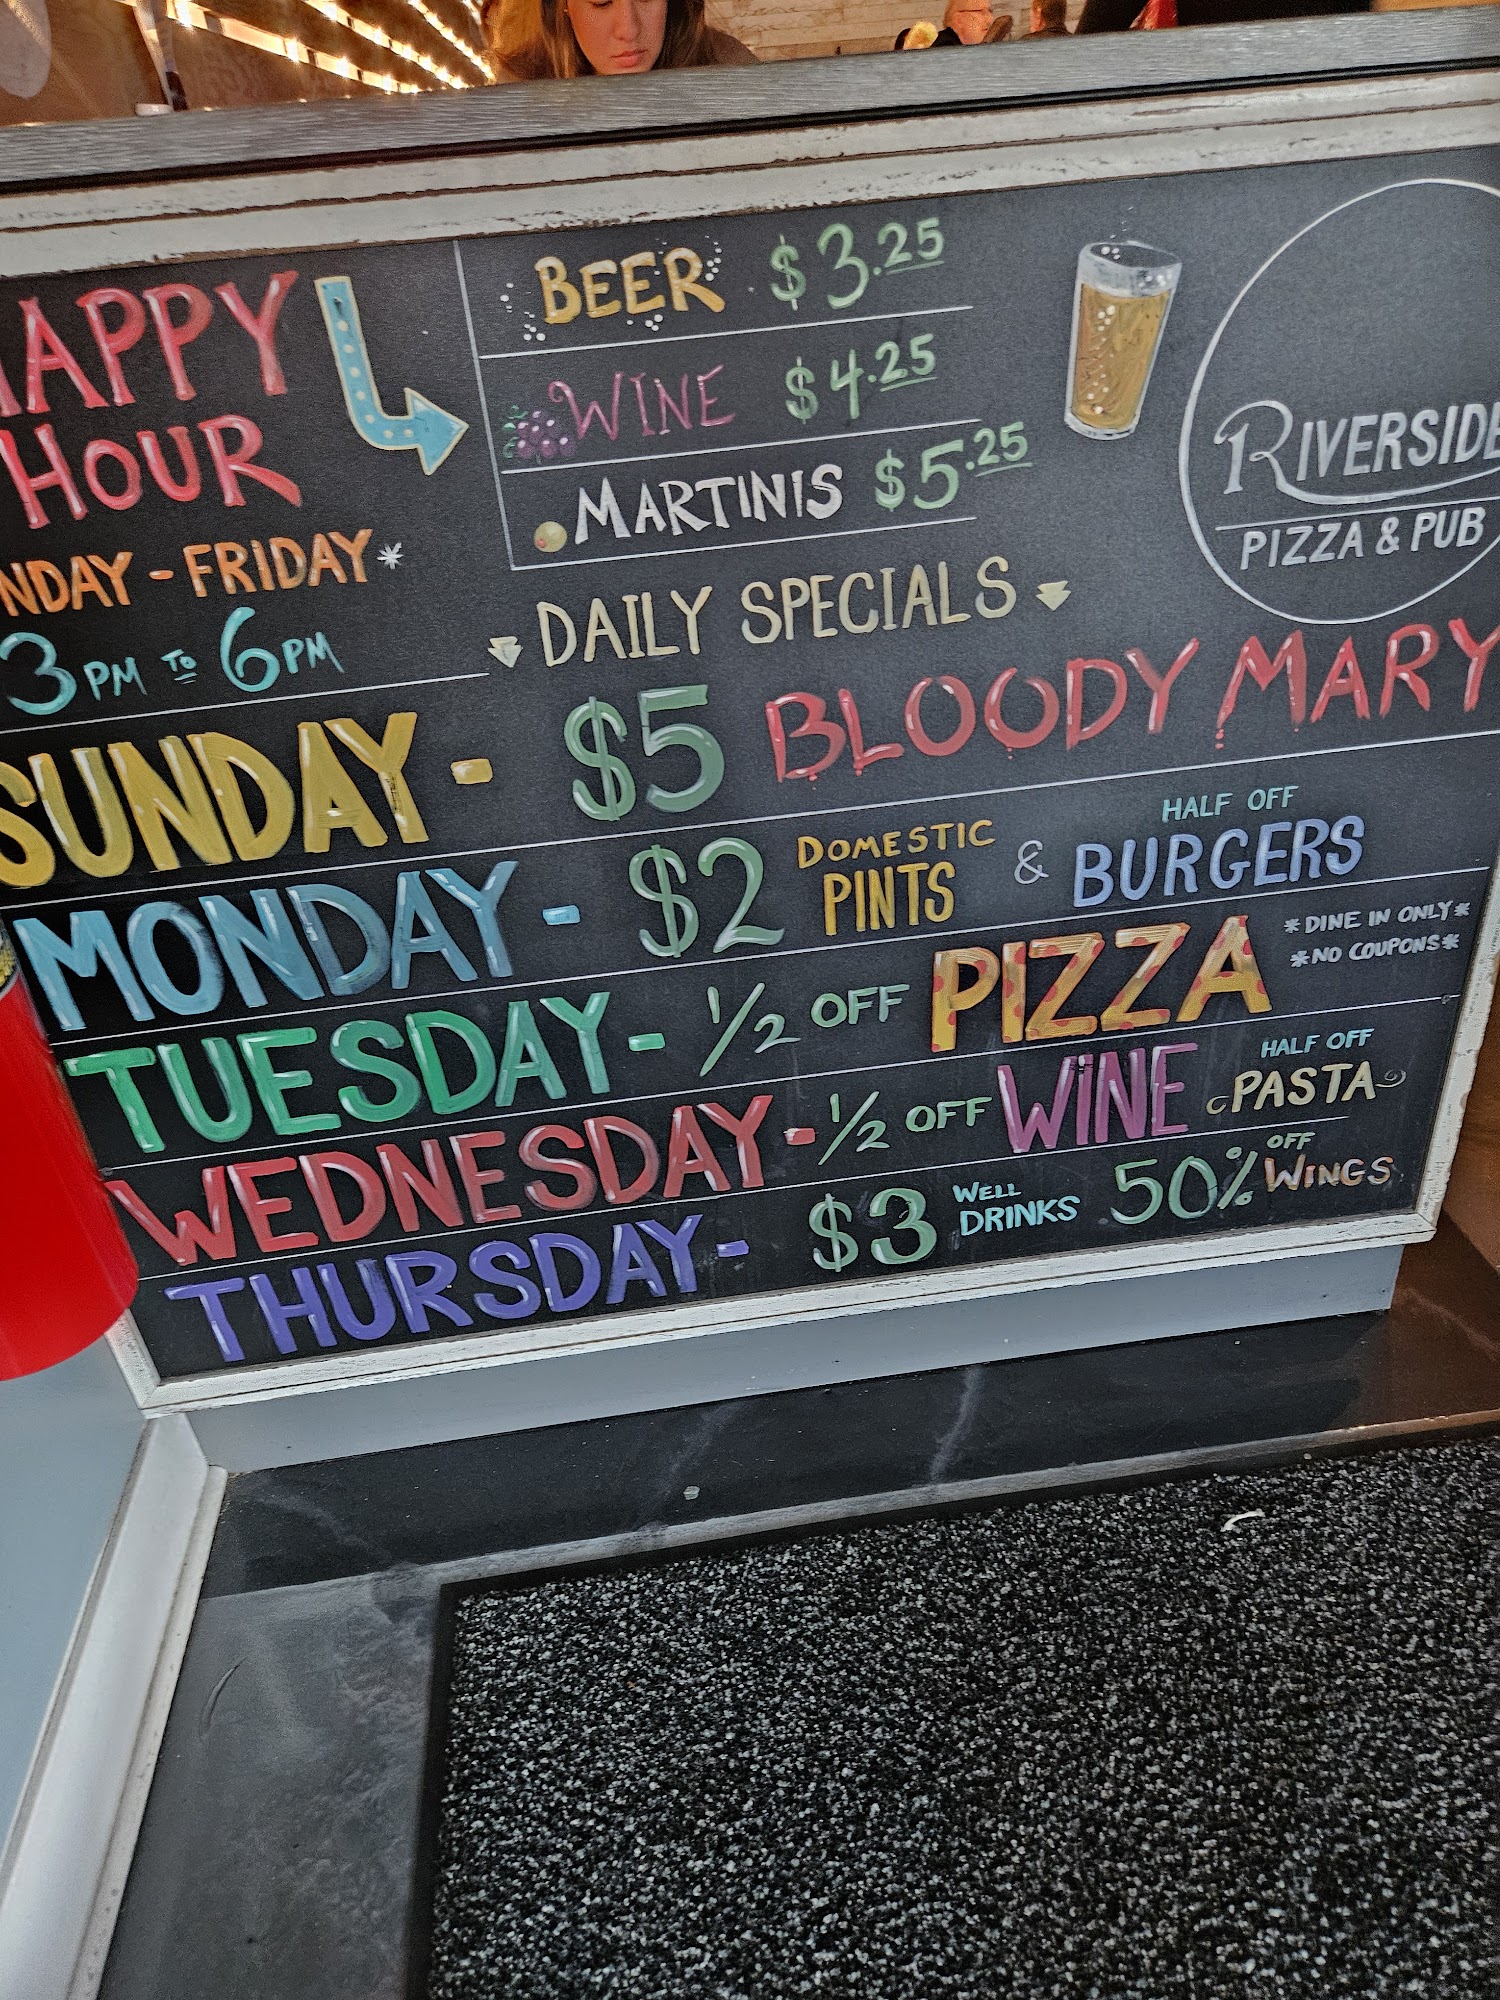 HAPPY
HOUR
NDAY - FRIDAY*
3 PM TO 6 PM
BEER $3.25
WINE $4.25
MARTINIS $5.25
RIVERSIDE
PIZZA & PUB
DAILY SPECIALS
SUNDAY - $5 BLOODY MARY
MONDAY - $2 DOMESTIC PINTS & HALF OFF BURGERS
TUESDAY - 1/2 OFF PIZZA *DINE IN ONLY*
*NO COUPONS*
WEDNESDAY - 1/2 OFF WINE HALF OFF PASTA
THURSDAY - $3 WELL DRINKS 50% OFF WINGS